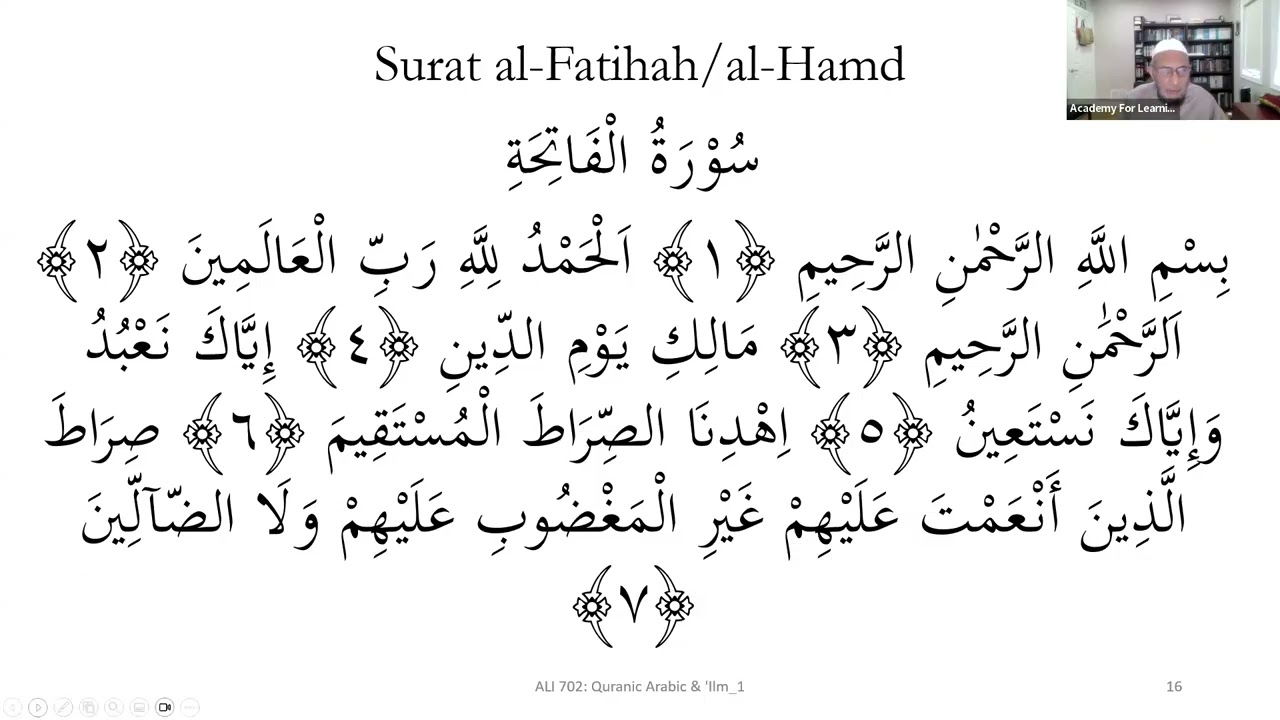 Surat al-Fatihah/al-Hamd
Academy For Learni...
سُوْرَةُ الْفَاتِحَةِ
بِسْمِ اللَّهِ الرَّحْمٰنِ الرَّحِيمِ ﴿١﴾ اَلْحَمْدُ لِلَّهِ رَبِّ الْعَالَمِينَ ﴿٢﴾
اَلرَّحْمٰنِ الرَّحِيمِ ﴿٣﴾ مَالِكِ يَوْمِ الدِّينِ ﴿٤﴾ إِيَّاكَ نَعْبُدُ
وَإِيَّاكَ نَسْتَعِينُ ﴿٥﴾ اِهْدِنَا الصِّرَاطَ الْمُسْتَقِيمَ ﴿٦﴾ صِرَاطَ
الَّذِينَ أَنْعَمْتَ عَلَيْهِمْ غَيْرِ الْمَغْضُوبِ عَلَيْهِمْ وَلَا الضَّآلِّينَ
﴿٧﴾
ALI 702: Quranic Arabic & 'Ilm_1
16